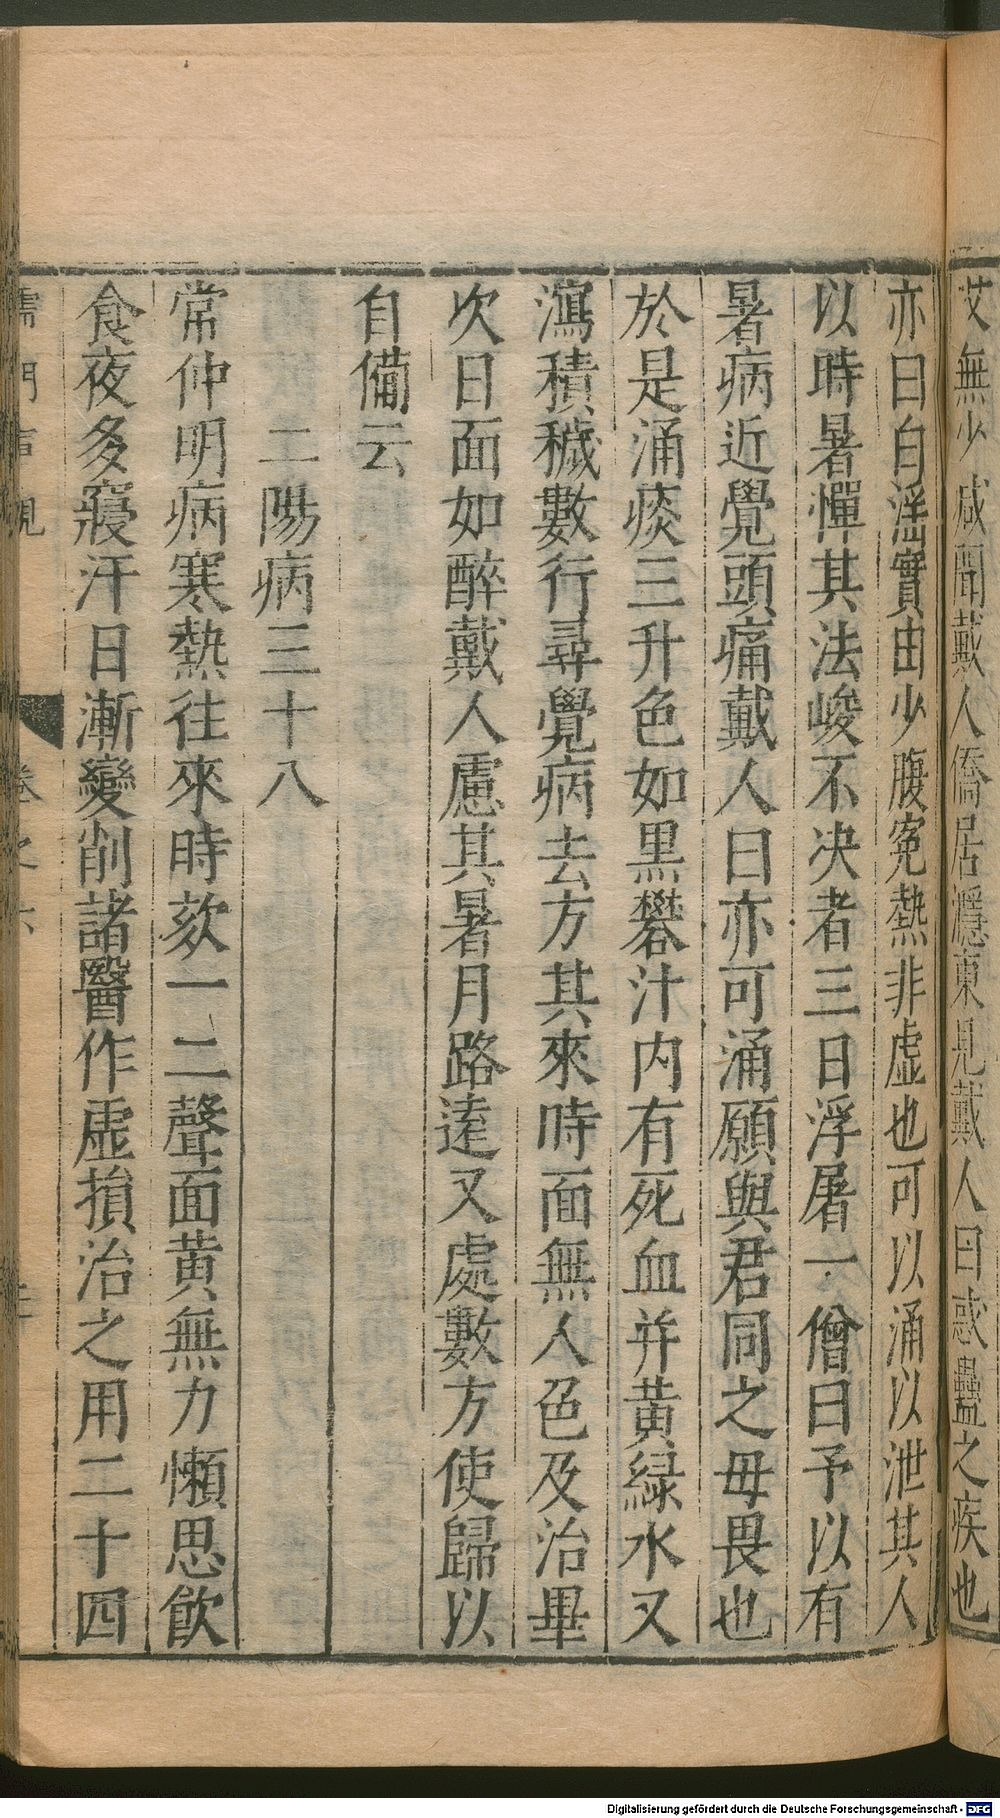 艾無少減聞戴人僑居㶏東見戴人曰惑蠱之疾也
亦曰白淫實由少腹寃熱非虛也可以涌以泄其人
以時暑憚其法峻不决者三日浮屠一僧曰予以有
暑病近覺頭痛戴人曰亦可涌願與君同之毋畏也
於是涌痰三升色如黒礬汁内有死血并黃緑水又
瀉積穢數行尋覺病去方其來時面無人色及治畢
次日面如醉戴人慮其暑月路遠又處數方使歸以
自備云
二陽病三十八
常仲明病寒熱往來時欬一二聲面黃無力懶思飲
食夜多寢汗日漸變削諸醫作虛損治之用二十四
儒門事親 卷之六
Digitalisierung gefördert durch die Deutsche Forschungsgemeinschaft - DFG